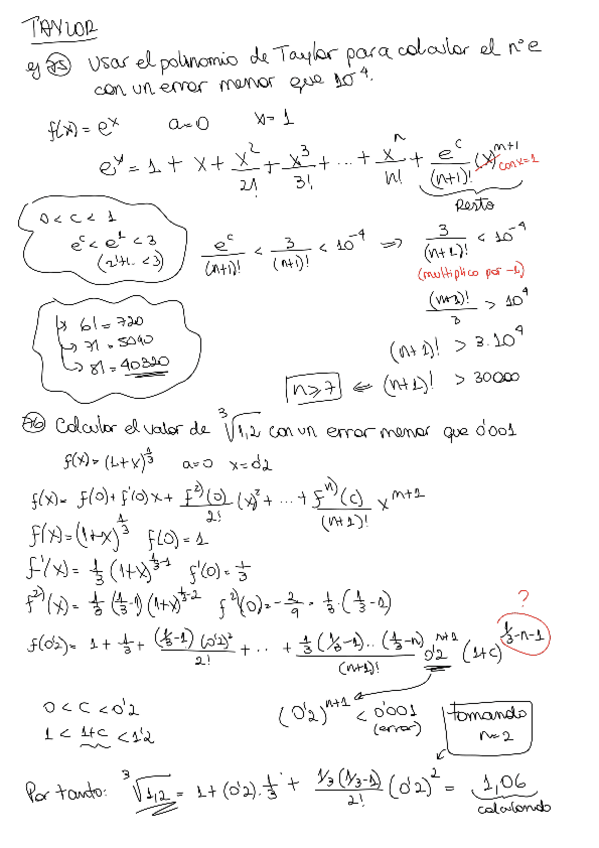 TAYLOR
ej 75 Usar el polinomio de Taylor para calcular el nº e
con un error menor que 10^-4.
f(x) = e^x a=0 x=1
e^x = 1 + x + x^2/2! + x^3/3! + ... + x^n/n! + e^c/(n+1)! (x)^n+1 con x=1
Resto
0 < c < 1
e^c < e^1 < 3
(2'71.. < 3)
e^c/(n+1)! < 3/(n+1)! < 10^-4 => 3/(n+1)! < 10^-4
(multiplico por -1)
(n+1)!/3 > 10^4
(n+1)! > 3.10^4
6! = 720
7! = 5040
8! = 40320
n ≥ 7 <= (n+1)! > 30000
76 Calcular el valor de ∛1,2 con un error menor que 0'001
f(x) = (1+x)^1/3 a=0 x=0'2
f(x) = f(0) + f'(0) x + f^2)(0)/2! (x)^2 + ... + f^n)(c)/(n+1)! x^n+1
f(x) = (1+x)^1/3 f(0) = 1
f'(x) = 1/3 (1+x)^1/3-1 f'(0) = 1/3
f^2)(x) = 1/3 (1/3-1) (1+x)^1/3-2 f^2)(0) = -2/9 = 1/3 · (1/3-1)
?
f(0'2) = 1 + 1/3 + (1/3-1)(0'2)^2/2! + ... + 1/3 (1/3-1)...(1/3-n)/(n+1)! 0'2^n+1 (1+c)^1/3-n-1
0 < c < 0'2
1 < 1+c < 1'2
(0'2)^n+1 < 0'001
(error)
tomando
n=2
Por tanto: ∛1,2 = 1 + (0'2).1/3 + 1/3(1/3-1)/2! (0'2)^2 = 1,06
calculando